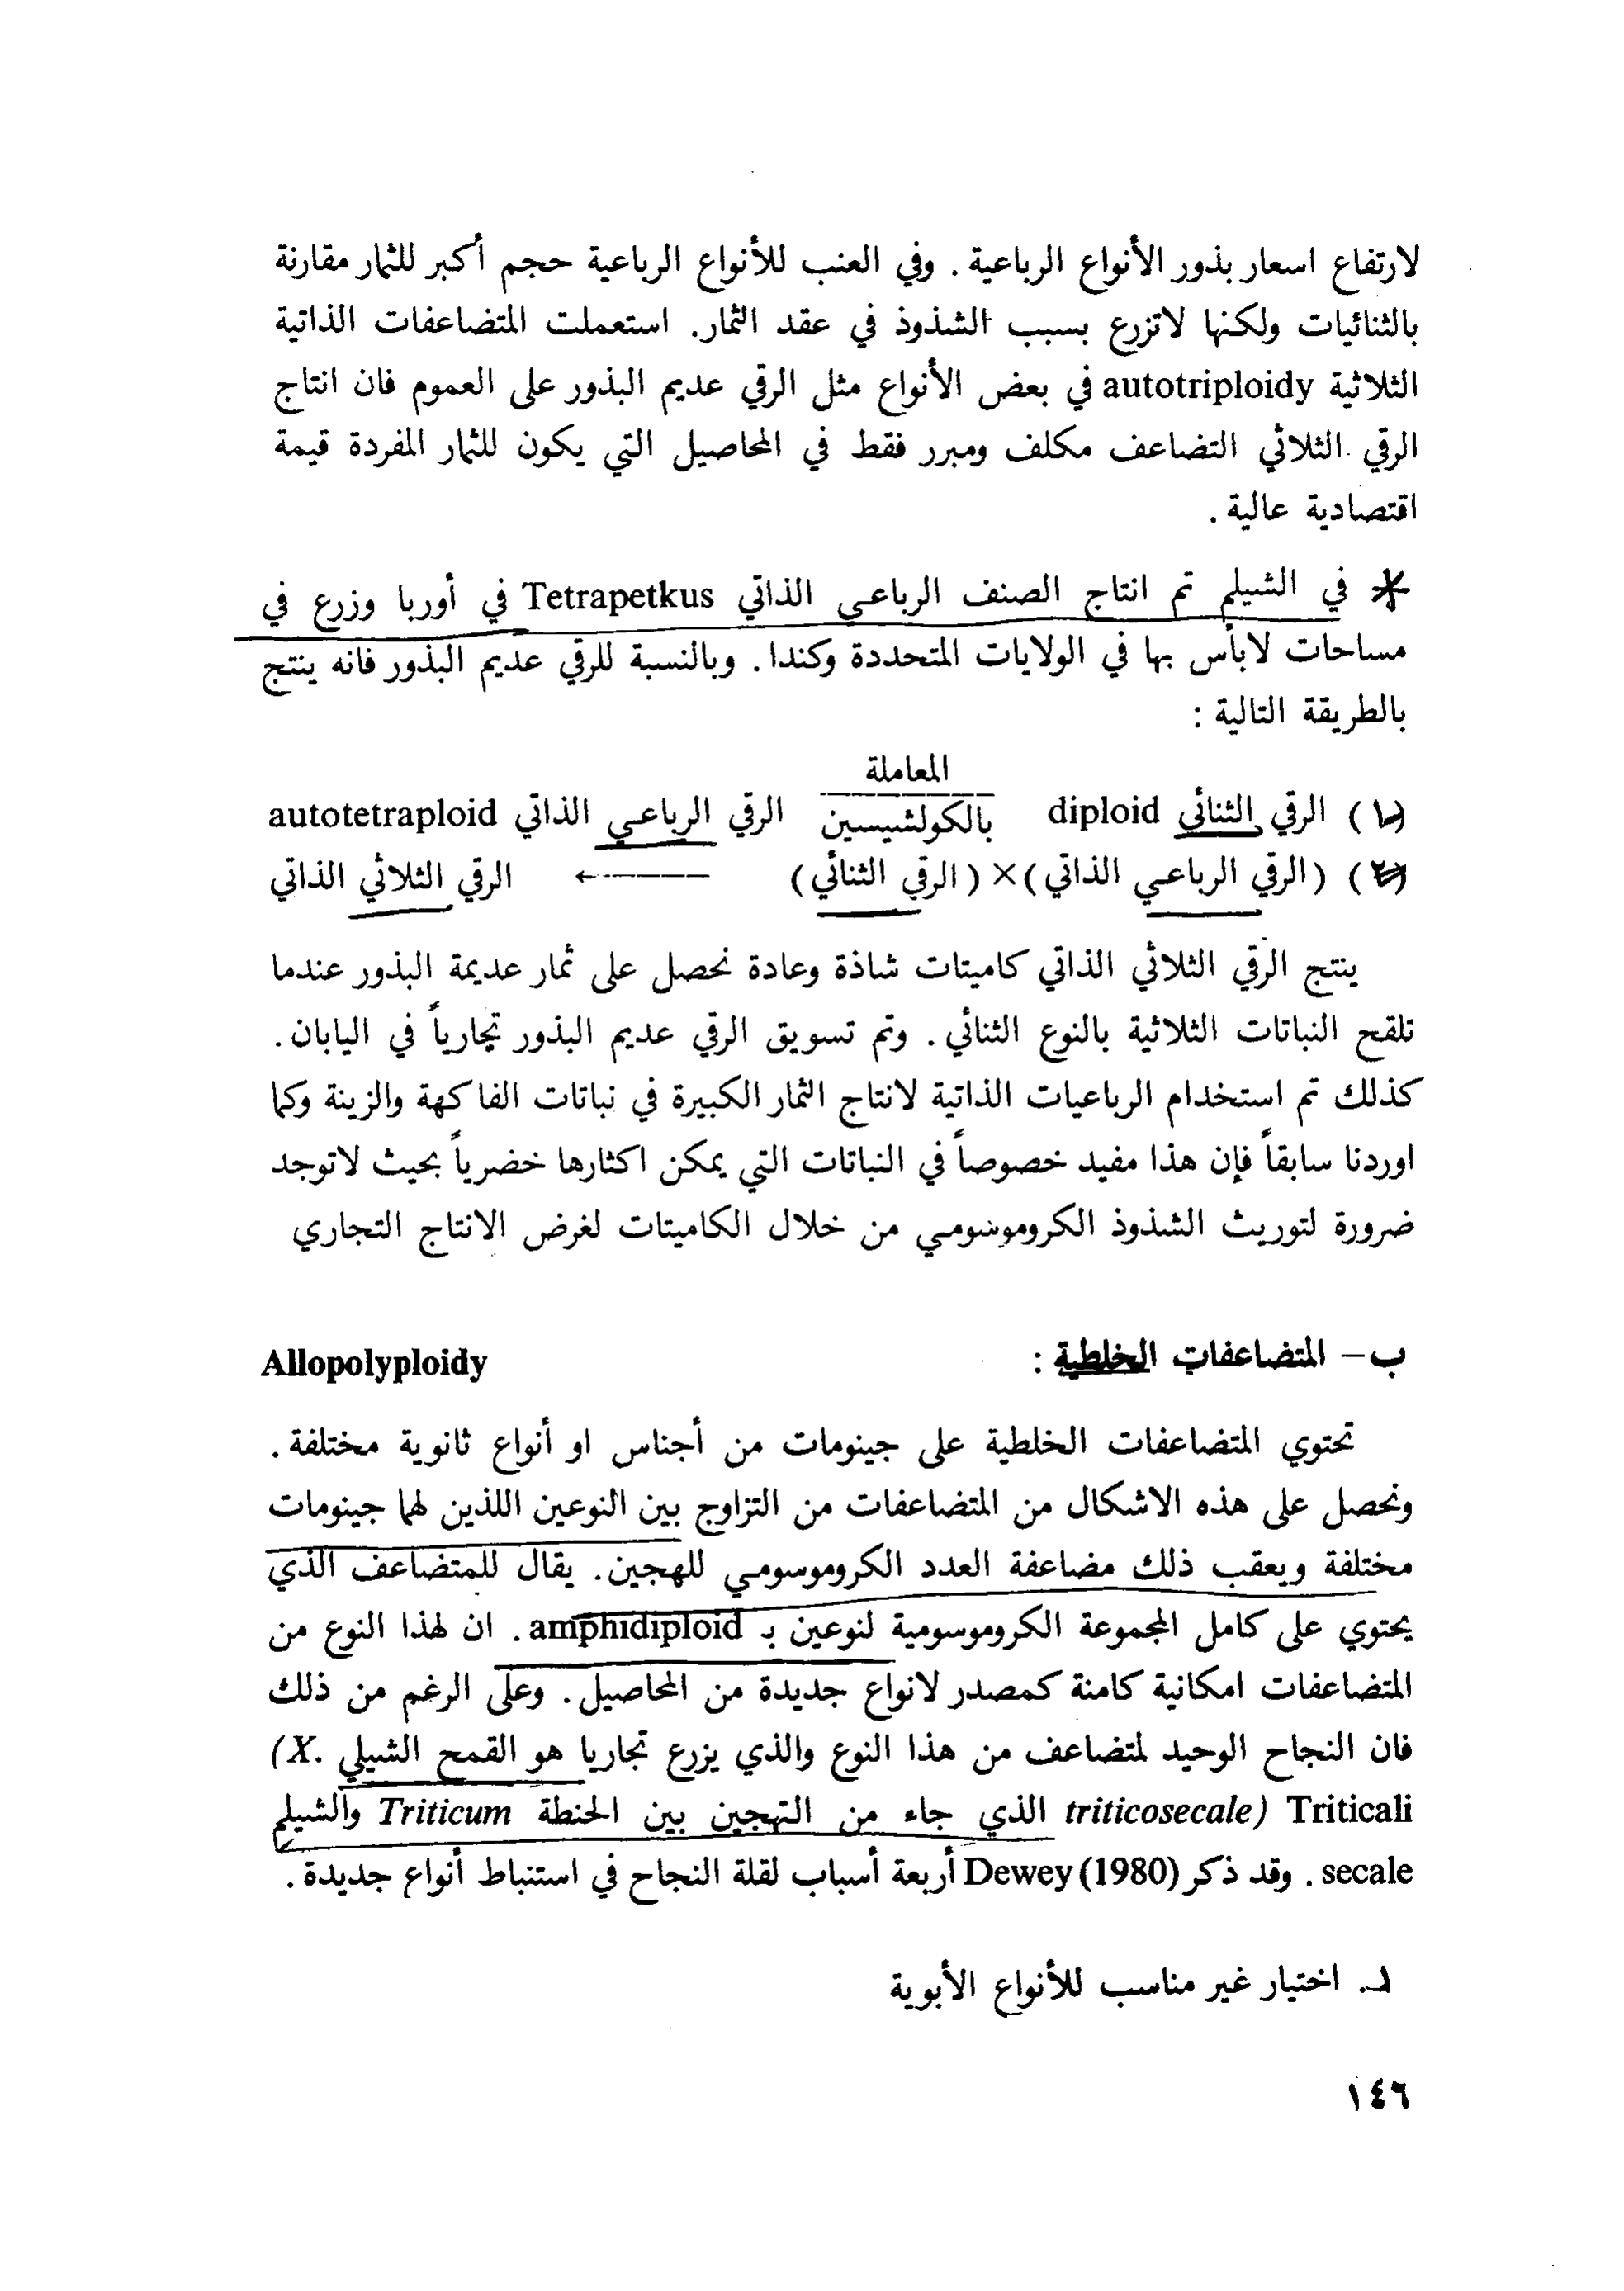 لارتفاع اسعار بذور الأنواع الرباعية . وفي العنب للأنواع الرباعية حجم أكبر للثمار مقارنة
بالثنائيات ولكنها لاتزرع بسبب الشذوذ في عقد الثمار. استعملت المتضاعفات الذاتية
الثلاثية autotriploidy في بعض الأنواع مثل الرقي عديم البذور على العموم فان انتاج
الرقي الثلاثي التضاعف مكلف ومبرر فقط في المحاصيل التي يكون للثمار المفردة قيمة
اقتصادية عالية .
* في الشيلم تم انتاج الصنف الرباعي الذاتي Tetrapetkus في أوربا وزرع في
مساحات لابأس بها في الولايات المتحددة وكندا . وبالنسبة للرقي عديم البذور فانه ينتج
بالطريقة التالية :
المعاملة
(١) الرقي الثنائي diploid بالكولشيسين الرقي الرباعي الذاتي autotetraploid
(٢) (الرقي الرباعي الذاتي)×(الرقي الثنائي) ----→ الرقي الثلاثي الذاتي
ينتج الرقي الثلاثي الذاتي كاميتات شاذة وعادة نحصل على ثمار عديمة البذور عندما
تلقح النباتات الثلاثية بالنوع الثنائي . وتم تسويق الرقي عديم البذور تجارياً في اليابان .
كذلك تم استخدام الرباعيات الذاتية لانتاج الثمار الكبيرة في نباتات الفاكهة والزينة وكما
اوردنا سابقاً فإن هذا مفيد خصوصاً في النباتات التي يمكن اكثارها خضرياً بحيث لاتوجد
ضرورة لتوريث الشذوذ الكروموسومي من خلال الكاميتات لغرض الانتاج التجاري
ب – المتضاعفات الخلطية : Allopolyploidy
تحتوي المتضاعفات الخلطية على جينومات من أجناس او أنواع ثانوية مختلفة .
ونحصل على هذه الاشكال من المتضاعفات من التزاوج بين النوعين اللذين لهما جينومات
مختلفة ويعقب ذلك مضاعفة العدد الكروموسومي للهجين. يقال للمتضاعف الذي
يحتوي على كامل المجموعة الكروموسومية لنوعين بـ amphidiploid . ان لهذا النوع من
المتضاعفات امكانية كامنة كمصدر لانواع جديدة من المحاصيل. وعلى الرغم من ذلك
فان النجاح الوحيد لمتضاعف من هذا النوع والذي يزرع تجاريا هو القمح الشيلي (X.
triticosecale) Triticali الذي جاء من التهجين بين الحنطة Triticum والشيلم
secale . وقد ذكر Dewey (1980) أربعة أسباب لقلة النجاح في استنباط أنواع جديدة .
١. اختيار غير مناسب للأنواع الأبوية
١٤٦